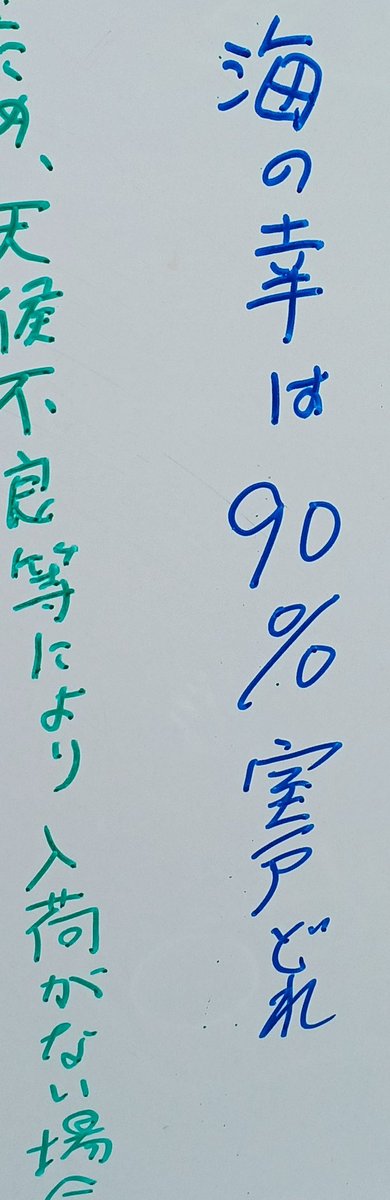 海の幸は90%室戸どれ
ため、天候不良等により入荷がない場合